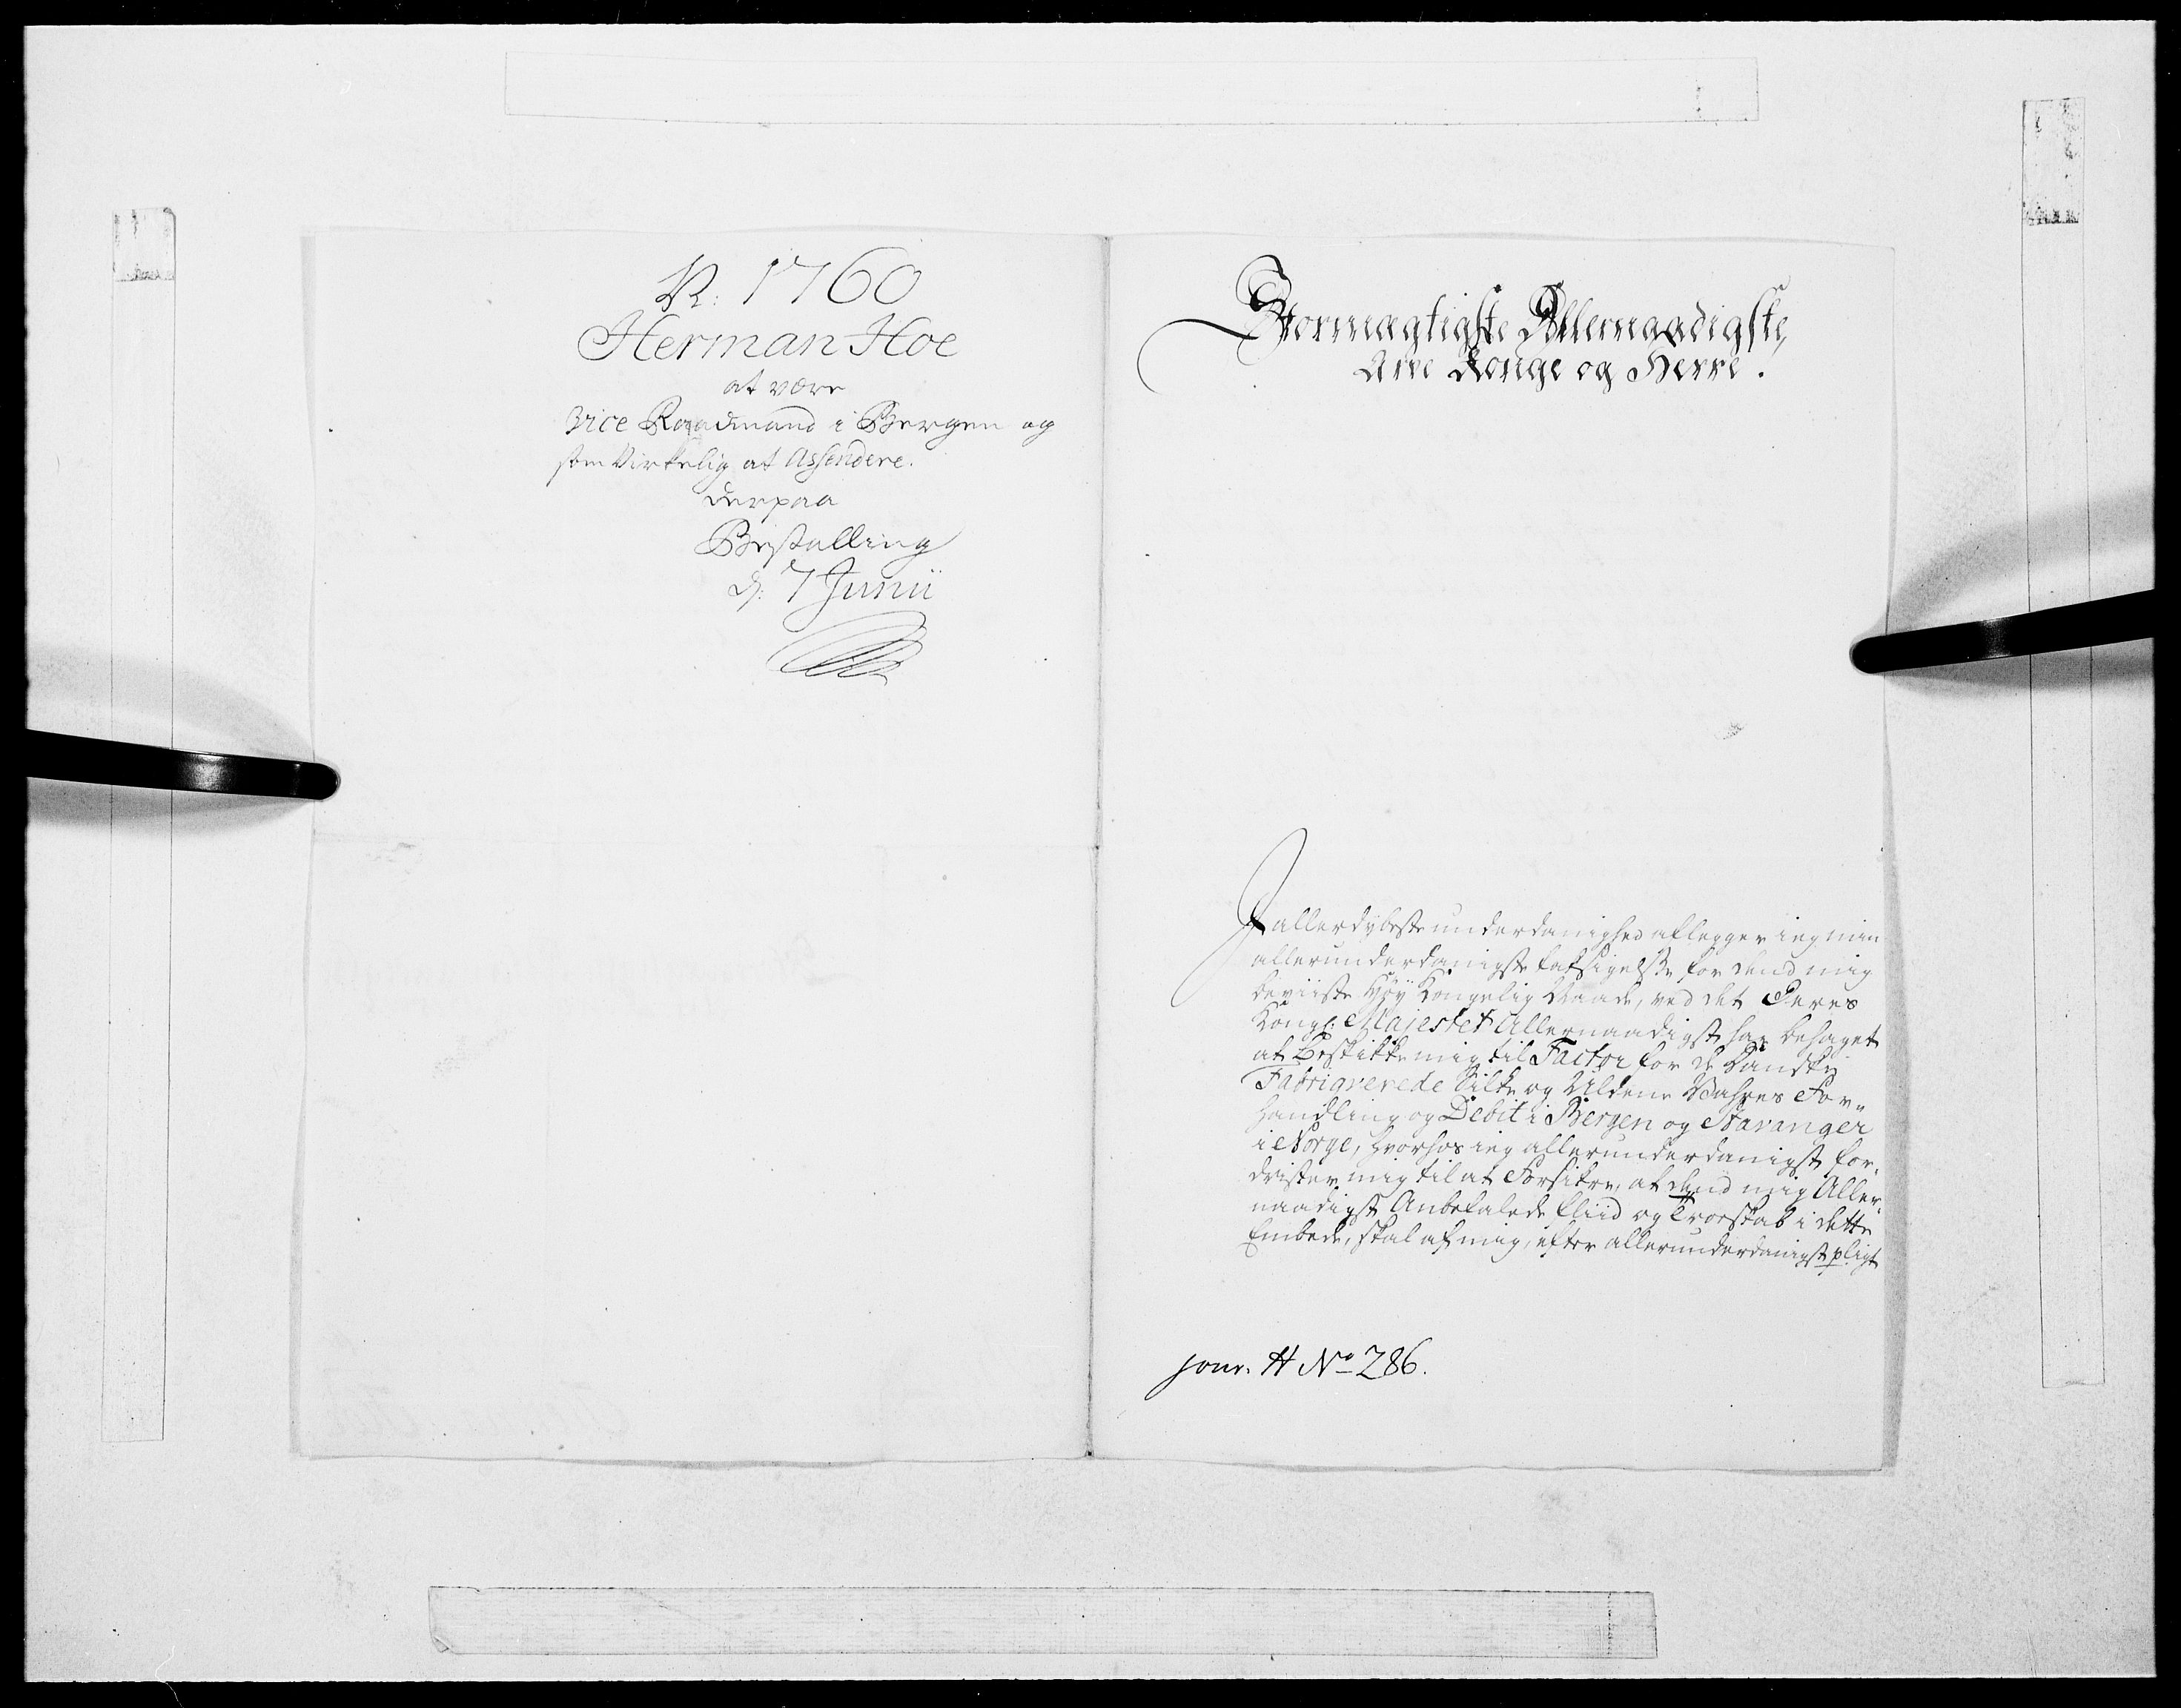 N: 1760
Herman Hoe
at være
Vice Raadmand i Bergen og
som Virkelig at Assendere.
derpaa
Bestalling
d: 7 Junii
Stormægtigste Allernaadigste,
Arve Konge og Herre.
I allerdybeste underdanighed aflegger ieg min
allerunderdanigste taksigelse for dend mig
beviiste Høy Kongelig Naade, ved det Deres
Kongl: Majestet Allernaadigst har behaget
at Beskikke mig til Factor for de Danske
Fabriqverede Silke og Uldene Vahres For„
handling og Debit i Bergen og Stavanger
i Norge, hvorhos ieg allerunderdanigst for„
drister mig til at Forsikre, at dend mig Aller„
naadigst Anbefalede Fliid og Troeskab i dette
Embede, skal af mig, efter allerunderdanigst pligt
Jour. H No 286.